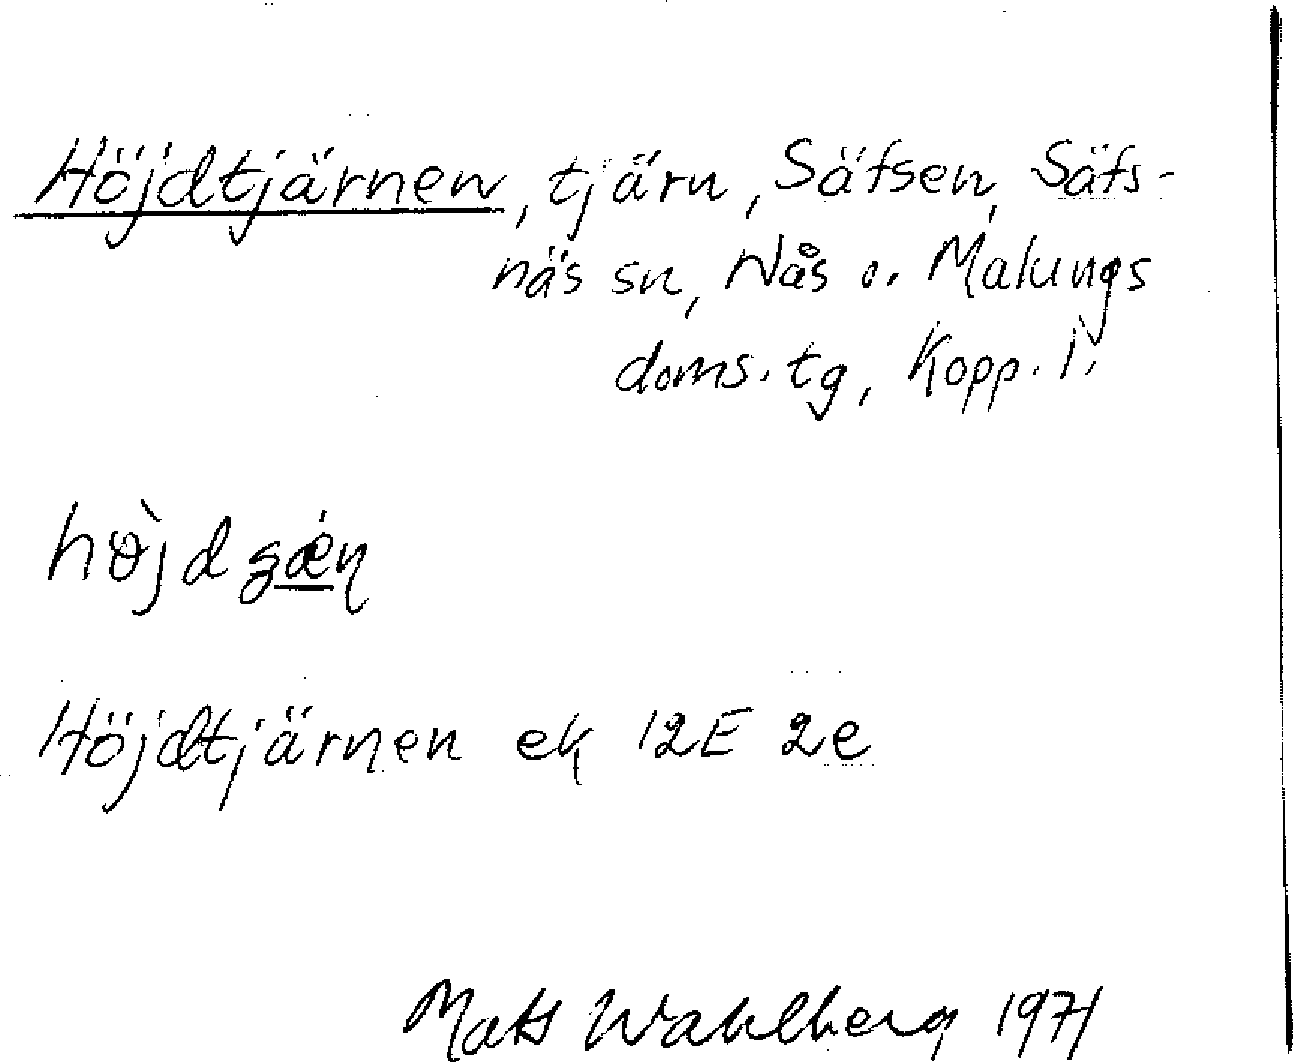 Höjdtjärnen, tjärn, Säfsen, Säfs-
näs sn, Nås o. Malungs
doms. tg, Kopp. l.
Höjdtjärnen ek 12E 2e
Mats Wahlberg 1971